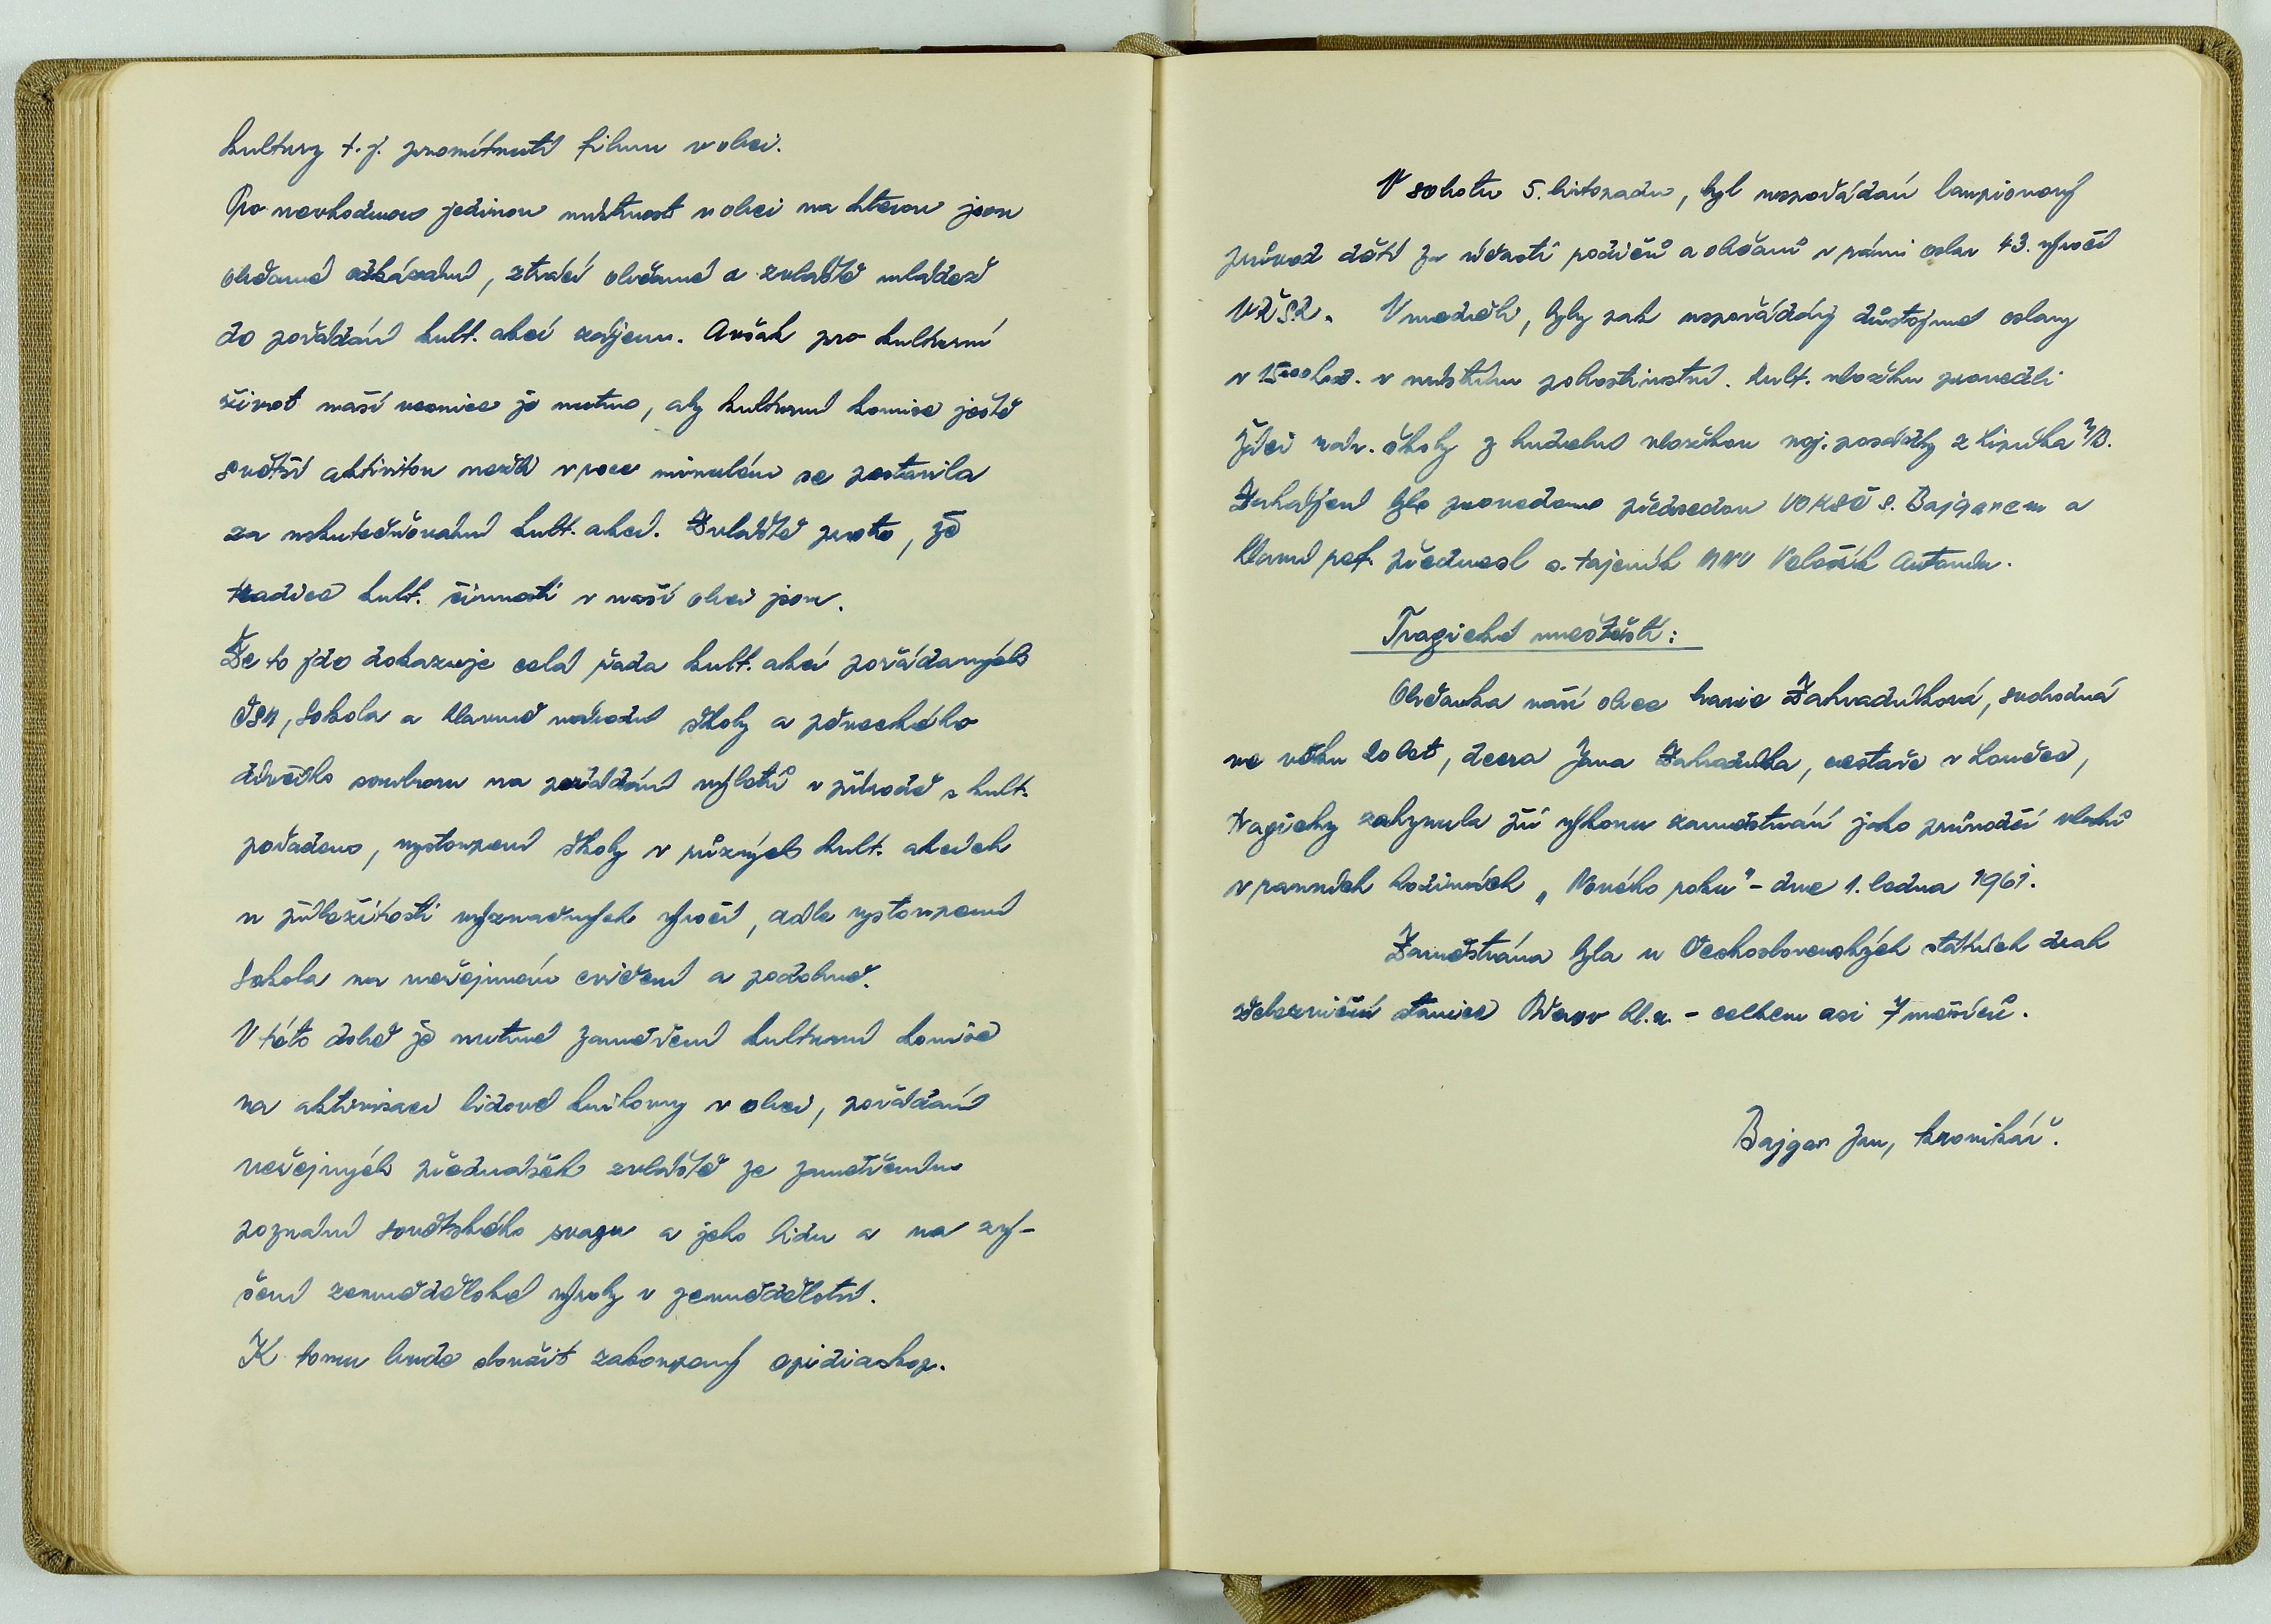 kultury t.j. promítnutí filmu v obci.
Pro nevhodnou jedinou místnost v obci na kterou jsou
občané odkázáni, ztrácí občané a zvláště mládež
do pořádání kult. akcí zájem. Avšak pro kulturní
život naší vesnice je nutno, aby kulturní komise ještě
s větší aktivitou nežli v roce minulém se postavila
za uskutečňování kult. akcí. Zvláště proto, že
tradice kult. činnosti v naší obci jsou.
Že to jde dokazuje celá řada kult. akcí pořádaných
ČSM, Sokola a hlavně národní školy a pěveckého
dívčího souboru na pořádání výletů v přírodě s kult.
pořadem, vystoupení školy v různých kult. akcích
u příležitosti význačných výročí, dále vystoupení
Sokola na veřejném cvičení a podobně.
V této době je nutné zaměření kulturní komise
na aktivisaci lidové knihovny v obci, pořádání
veřejných přednášek zvláště ze zaměřením
poznání sovětského svazu a jeho lidu a na zvý-
šení zemědělské výroby v zemědělství.
K tomu bude sloužit zakoupený epidiaskop.
V sobotu 5. listopadu, byl uspořádán lampionový
průvod dětí za účasti rodičů a občanů v rámci oslav 43. výročí
VŘSR. V neděli, byly pak uspořádány důstojné oslavy
v 15 00 hod. v místním pohostinství. Kult. vložku provedli
žáci nár. školy z hudební vložkou voj. posádky z Lipníka n/B.
Zahájení bylo provedeno předsedou VOKSČ s. Bajgarem a
hlavní ref. přednesl s. tajemík MNV Antonín.
Tragické neštěstí:
Občanka naší obce Marie Zahradníková, svobodná
ve věku 20 let, dcera Jana Zahradníka, cestáře v Loučce,
tragicky zahynula při výkonu zaměstnání jako průvodčí vlaků
v ranních hodinách „Nového roku" - dne 1. ledna 1961.
Zaměstnána byla u Československých státních drah
železniční stanice Přerov hl. n. - celkem asi 7 měsíců.
Bajgar Jan, kronikář.